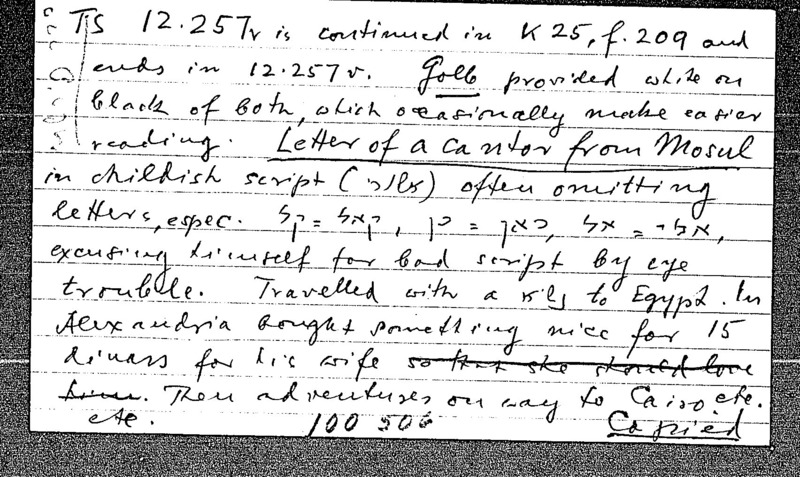 TS 12.257r is continued in K 25, f. 209 and
ends in 12.257v. Golb provided white on
black of both, which occasionally make easier
reading. Letter of a cantor from Mosul
in childish script ( ) often omitting
letters, espec. קאל = קל, כאן = כן, אלי = אל,
excusing himself for bad script by eye
trouble. Travelled with a to Egypt. In
Alexandria bought something nice for 15
dinars for his wife so that she should love
him. Then adventures on way to Cairo etc.
etc. 100 506 Copied